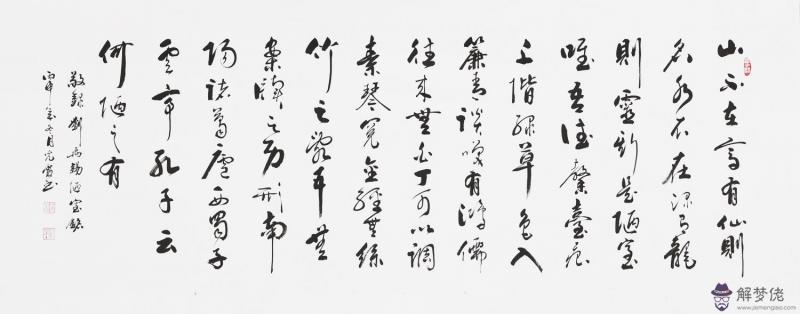 山不在高有仙則
名水不在深有龍
則靈斯是陋室
唯吾德馨臺痕
上階綠草色入
簾青談嘆有鴻儒
往來無白丁可以調
素琴閱金經無絲
竹之亂耳無
案牘之勞形南
陽諸葛廬西蜀子
雲亭孔子云
何陋之有
敬錄劉禹錫陋室銘
丙申年冬月
解梦佬
www.jiemenglao.com